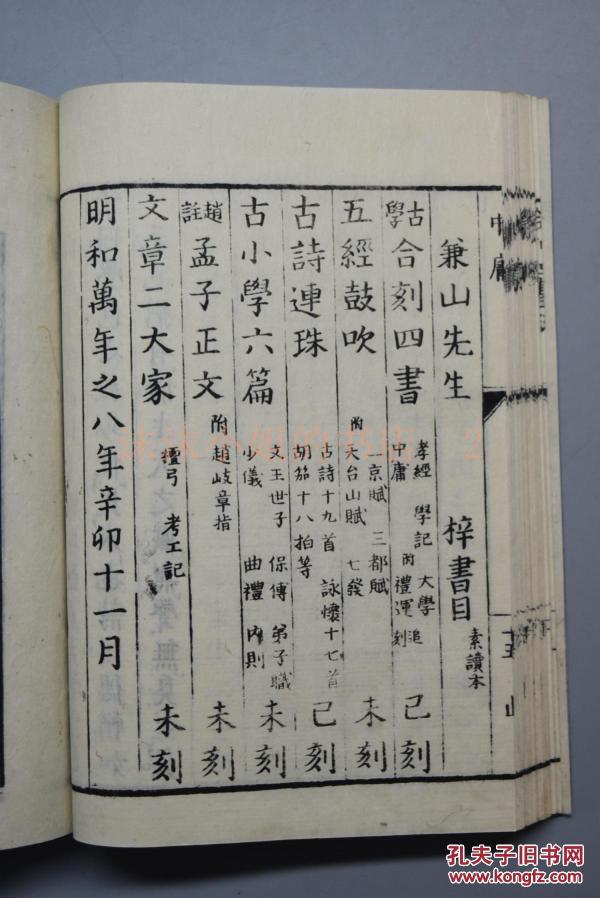 兼山先生 梓書目 素讀本
古學 合刻四書 孝經 學記 大學 中庸 附禮運追刻 已刻
五經鼓吹 二京賦 三都賦 附天台山賦 七發 未刻
古詩連珠 古詩十九首 詠懷十七首 胡笳十八拍等 已刻
古小學六篇 文王世子 保傅 弟子職 少儀 曲禮 內則 未刻
趙註 孟子正文 附趙岐章指 未刻
文章二大家 檀弓 考工記 未刻
明和萬年之八年辛卯十一月
中庸
孔夫子旧书网
www.kongfz.com